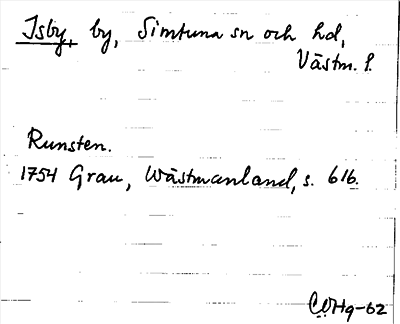 Isby, by, Simtuna sn och hd,
Västm. l.
Runsten.
1754 Grau, Wästmanland, s. 616.